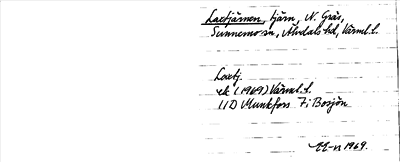 Laxtjärnen, tjärn, N. Gräs,
Sunnemo sn, Älvdals hd, Värml. l.
Laxtj.
ek (1969) Värml. l.
11D Munkfors 7i Bosjön
1969.